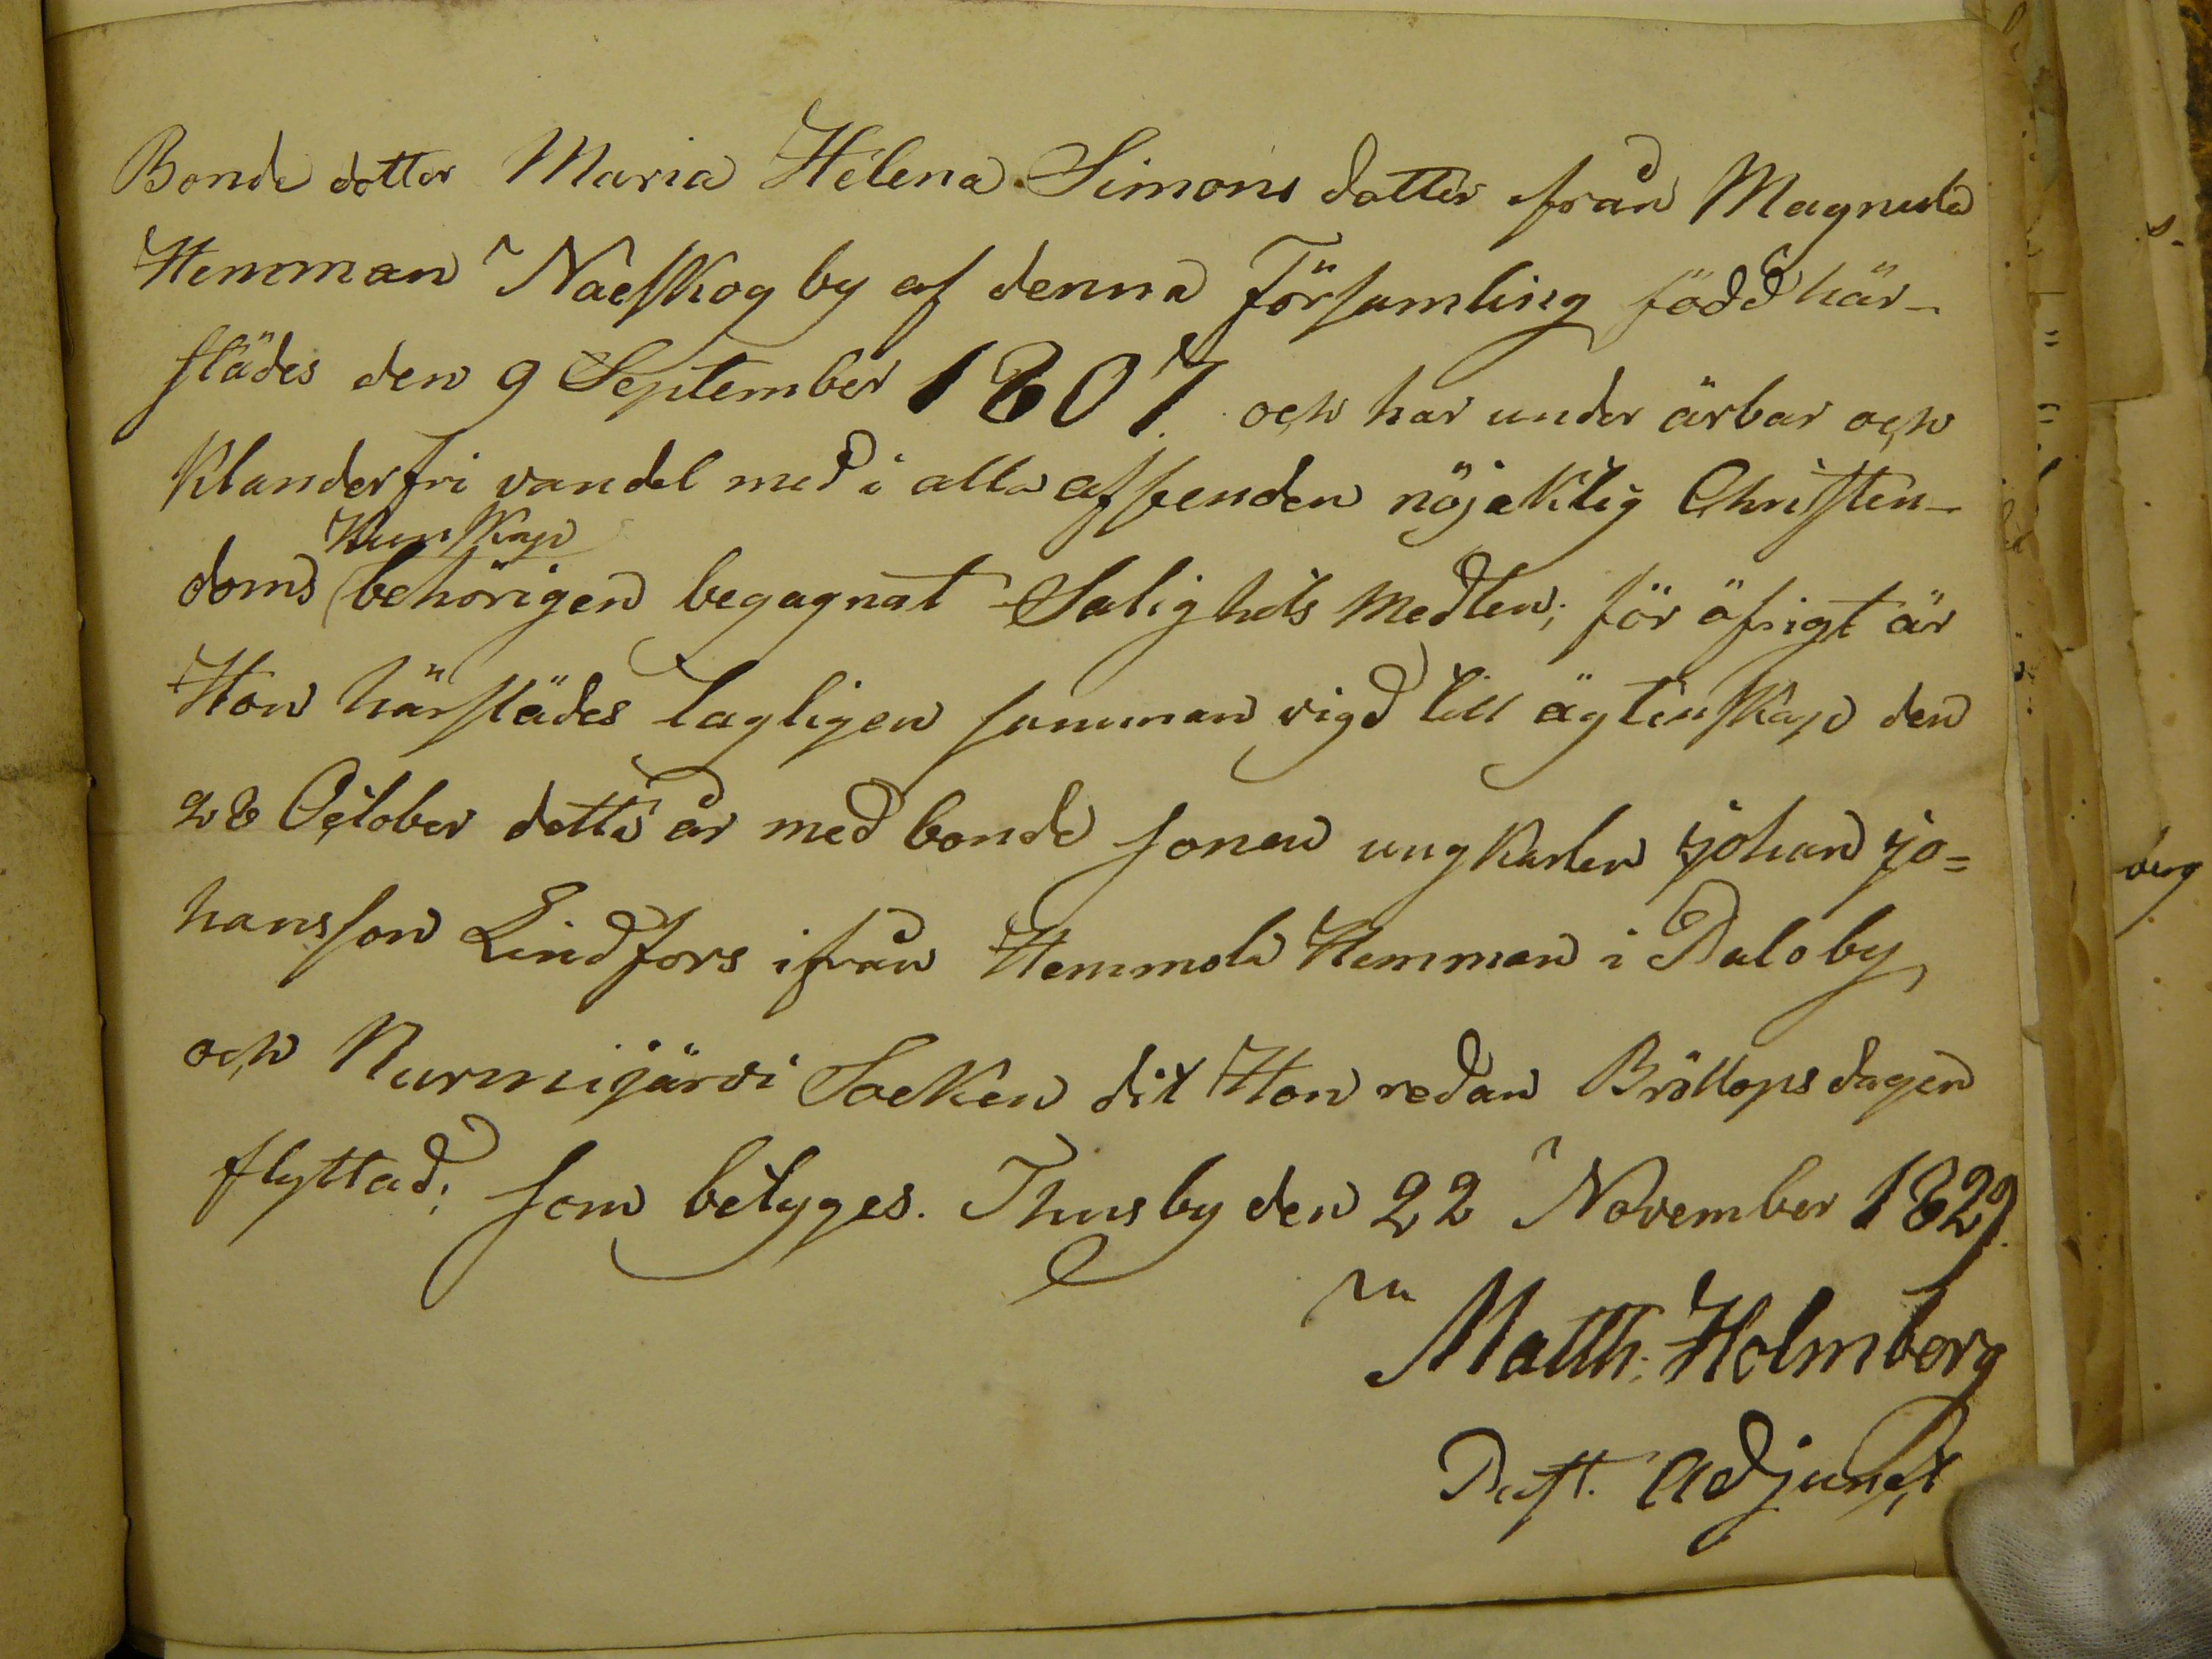 Bonde dotter Maria Helena Simons dotter från Magnula
Hemman Naeskog by af denna Församling född här-
städes den 9 September 1807. och har under ärbar och
Klanderfri vandel med i alla afseenden nöjaktig Christen-
Kunskap
doms behörigen begagnat Salighets Medlen; för öfrigt är
Hon härstädes lagligen samman vigd till ägtenskap den
28 October detta år med bonde sonen ungkarlen Johan Jo=
hansson Lindfors ifrån Hemmola Hemman i Palo by
och Nurmijärvi Socken dit Hon redan Bröllops dagen
flyttad; som betyges. Thusby den 22 November 1829.
Matth: Holmberg
Past. Adjunct
berg